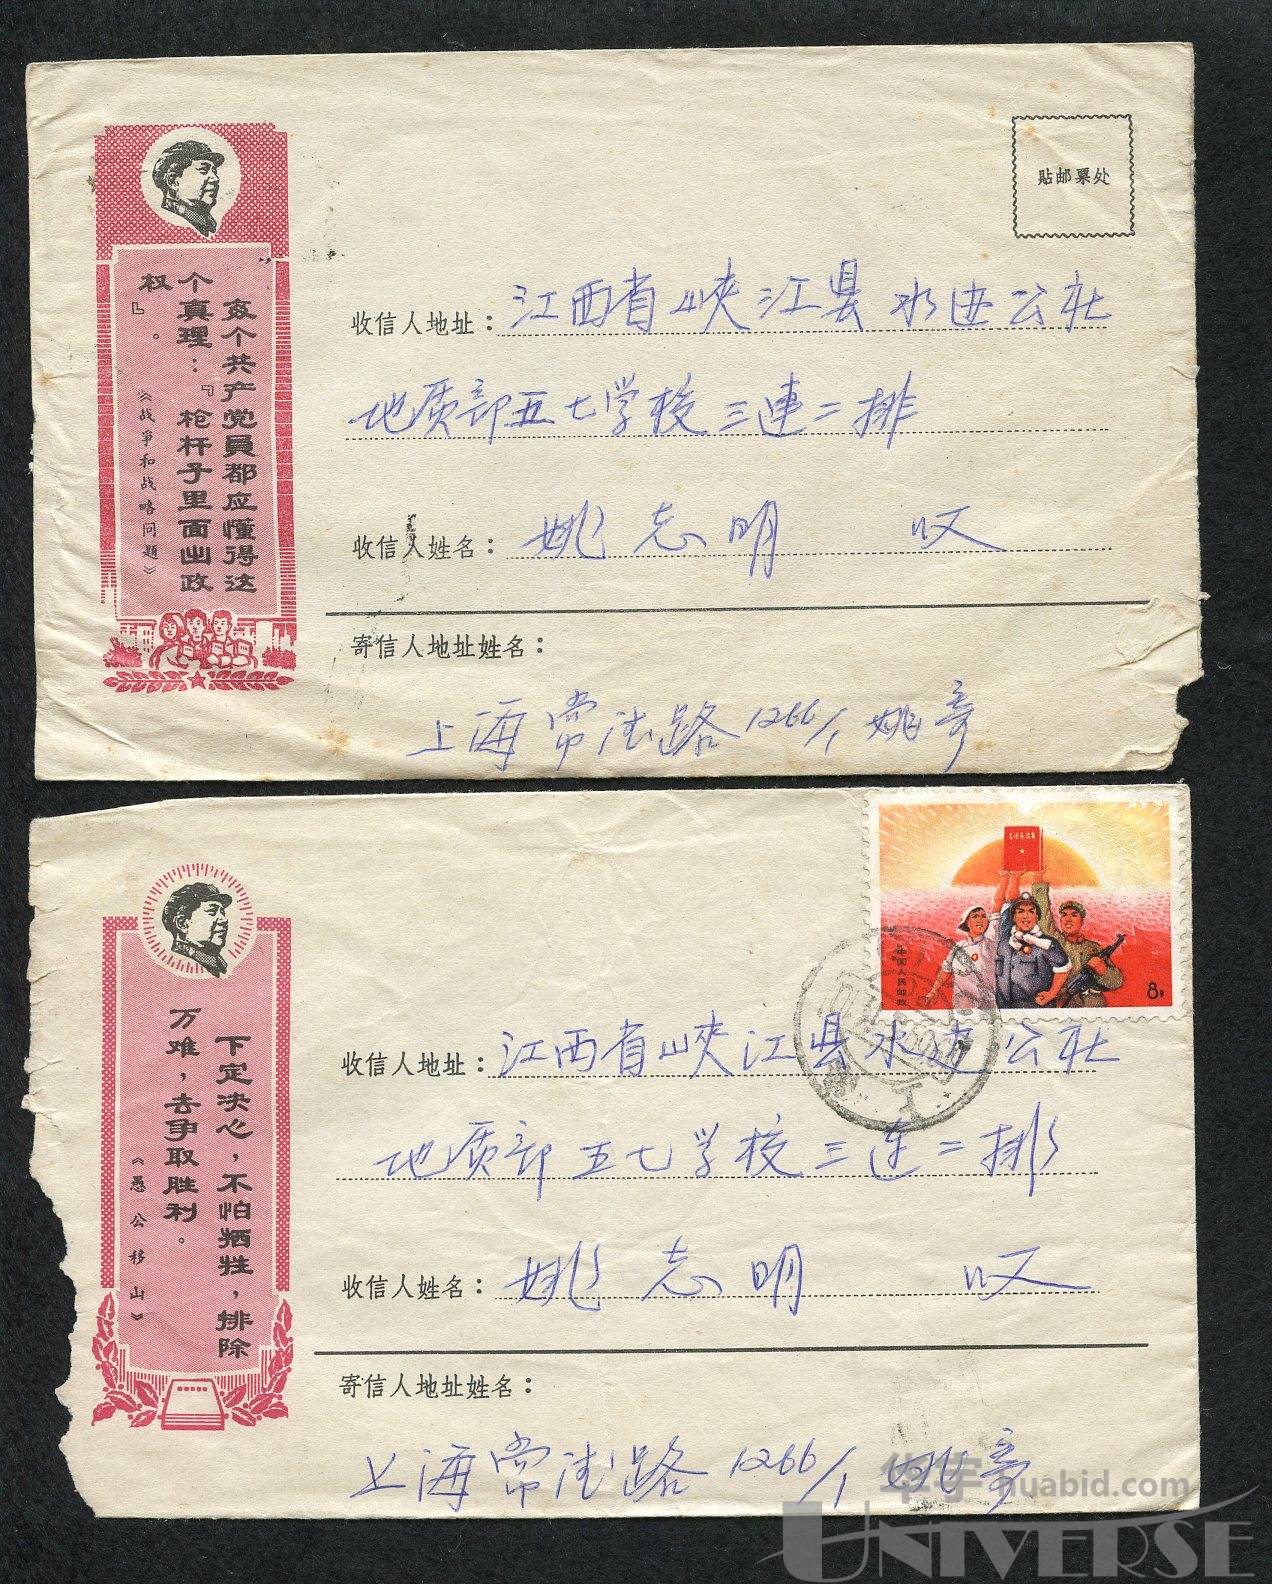 每个共产党员都应懂得这
个真理：『枪杆子里面出政
权』。
《战争和战略问题》
贴邮票处
收信人地址：江西省峡江县水边公社
地质部五七学校三連二排
收信人姓名：姚志明 收
寄信人地址姓名：
上海常法路1266/1姚寄
下定决心，不怕牺牲，排除
万难，去争取胜利。
《愚公移山》
中国人民邮政
8分
收信人地址：江西省峡江县水边公社
地质部五七学校三连二排
收信人姓名：姚志明 收
寄信人地址姓名：
上海常法路1266/1姚寄
华宇huabid.com
UNIVERSE